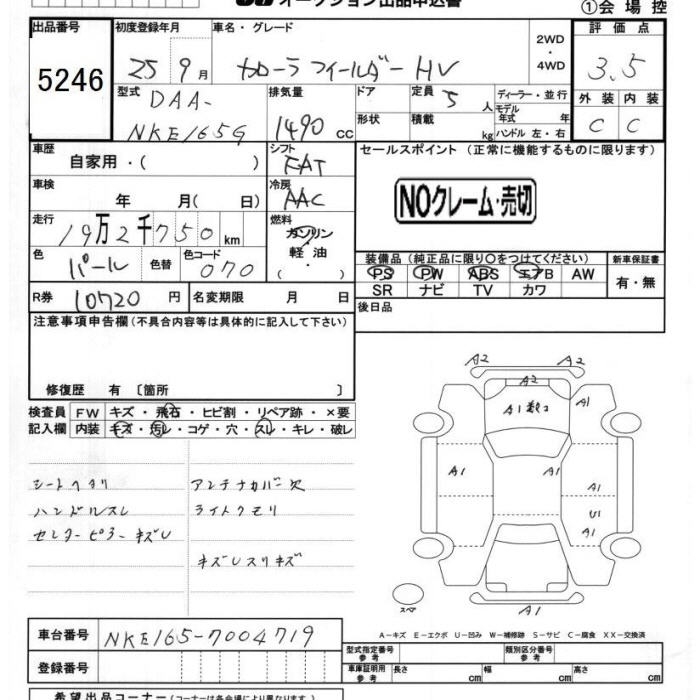 オークション出品申込書
①会場控
出品番号 初度登録年月 車名・グレード 2WD・4WD 評価点
5246 25 9月 カローラフィールダー HV 3.5
型式 DAA-NKE165G 排気量 1490 cc ドア 形状 定員 5人 積載 kg ディーラー・並行 モデル年式 年 ハンドル 左・右 外装 内装
C C
車歴 自家用・( ) シフト FAT セールスポイント (正常に機能するものに限ります)
車検 年 月( 日) 冷房 AAC
NOクレーム・売切
走行 19万2千750km 燃料 ガソリン・軽油・( )
色 パール 色替 色コード 070
装備品(純正品に限り○をつけてください) 新車保証書
PS PW ABS エアB AW 有・無
SR ナビ TV カワ
R券 10720円 名変期限 月 日 後日品
注意事項申告欄(不具合内容等は具体的に記入して下さい)
修復歴 有 〔箇所 〕
検査員 FW キズ・飛石・ヒビ割・リペア跡・×要
記入欄 内装 キズ・汚レ・コゲ・穴・スレ・キレ・破レ
シートヘタリ アンテナカバー欠
ハンドルスレ ライトクモリ
センターピラーキズU
キズUスリキズ
A2 A2
A2
A1数コ A1
A1 A1 A1
U1
A1
A1
スペア
A-キズ E-エクボ U-凹み W-補修跡 S-サビ C-腐食 XX-交換済
車台番号 NKE165-7004719
型式指定番号 参考 類別区分番号 参考
登録番号
車庫証明用 参考 長さ cm 幅 cm 高さ cm
希望出品コーナー(コーナーは各会場により異なります)